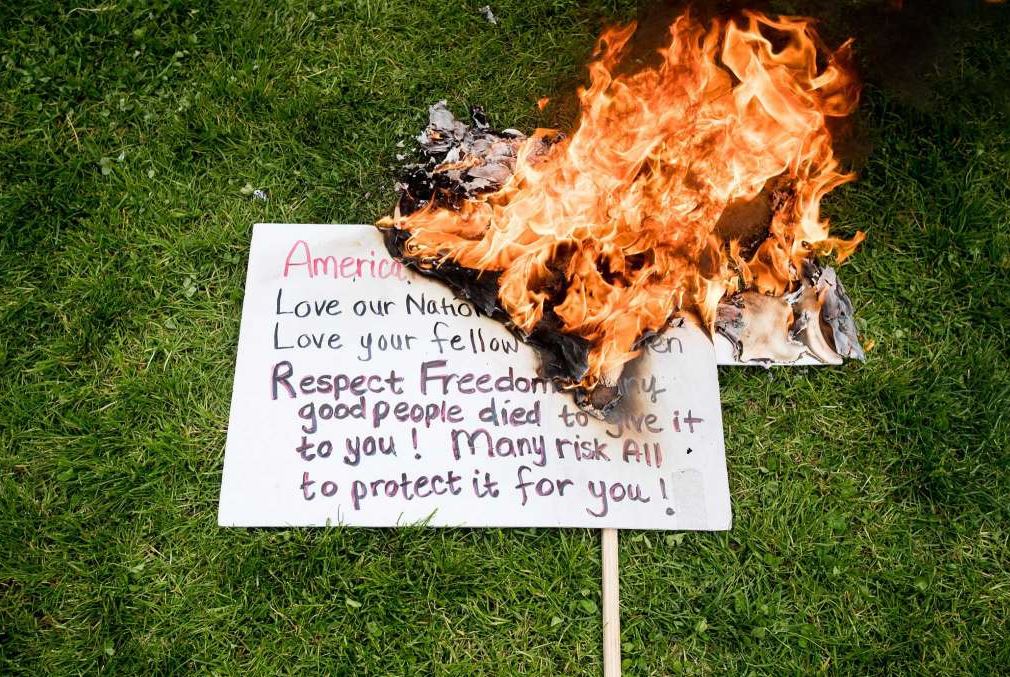 America
Love our Natio
Love your fellow en
Respect Freedom ny
good people died to give it
to you! Many risk All
to protect it for you!